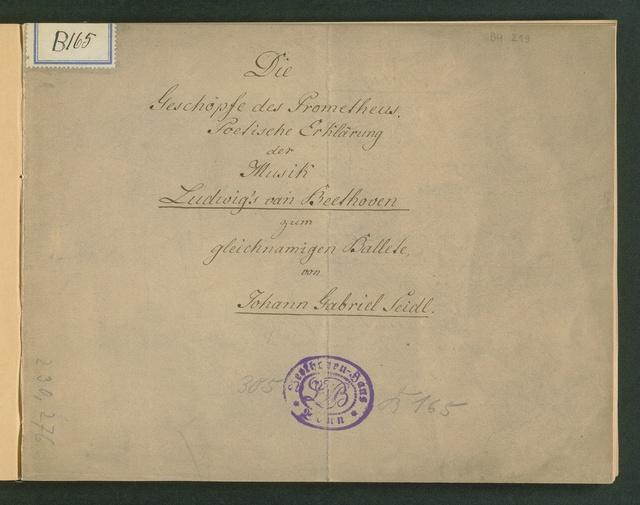 B165
BH 219
Die
Geschöpfe des Prometheus.
Poetische Erklärung
der
Musik
Ludwig's van Beethoven
zum
gleichnamigen Ballete,
von
Johann Gabriel Seidl.
Beethoven-Haus
LVB
Bonn
305
165
239, 276